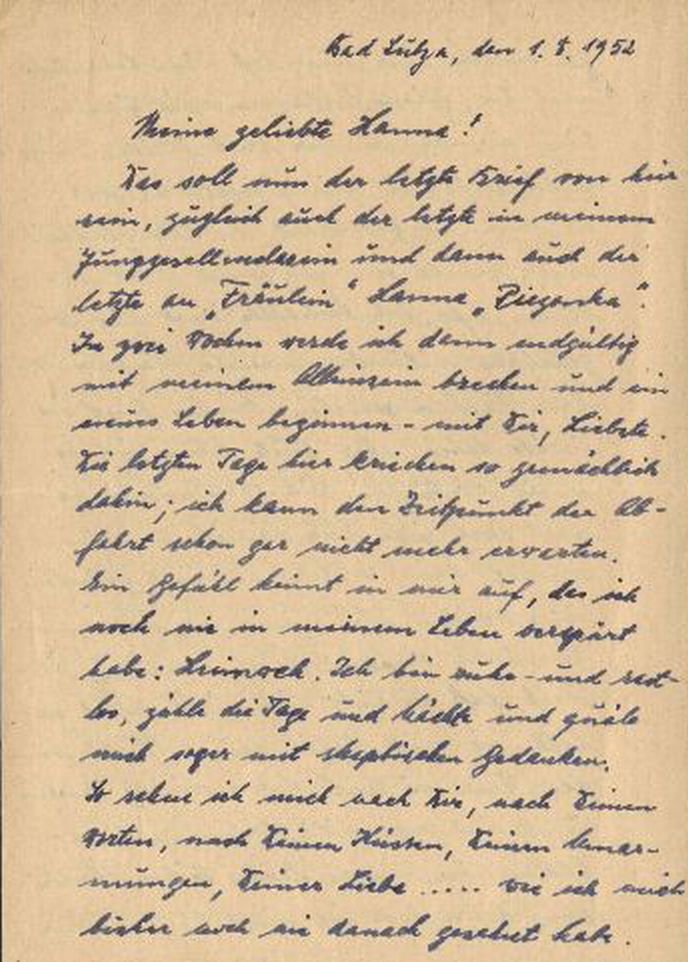 Bad Sulza, den 1. 8. 1952
Meine geliebte Hanna!
Das soll nun der letzte Brief von hier
sein, zugleich auch der letzte in meinem
Junggesellendasein und dann auch der
letzte an „Fräulein“ Hanna „Piezonka“.
In zwei Wochen werde ich dann endgültig
mit meinem Alleinsein brechen und ein
neues Leben beginnen - mit Dir, Liebste.
Die letzten Tage hier kriechen so gemächlich
dahin; ich kann den Zeitpunkt der Ab-
fahrt schon gar nicht mehr erwarten.
Ein Gefühl keimt in mir auf, das ich
noch nie in meinem Leben verspürt
habe: Heimweh. Ich bin ruhe- und rast-
los, zähle die Tage und Nächte und quäle
mich sogar mit skeptischen Gedanken.
So sehne ich mich nach Dir, nach Deinen
Worten, nach Deinen Küssen, Deinen Umar-
mungen, Deiner Liebe ..... wie ich mich
bisher noch nie danach gesehnt habe.